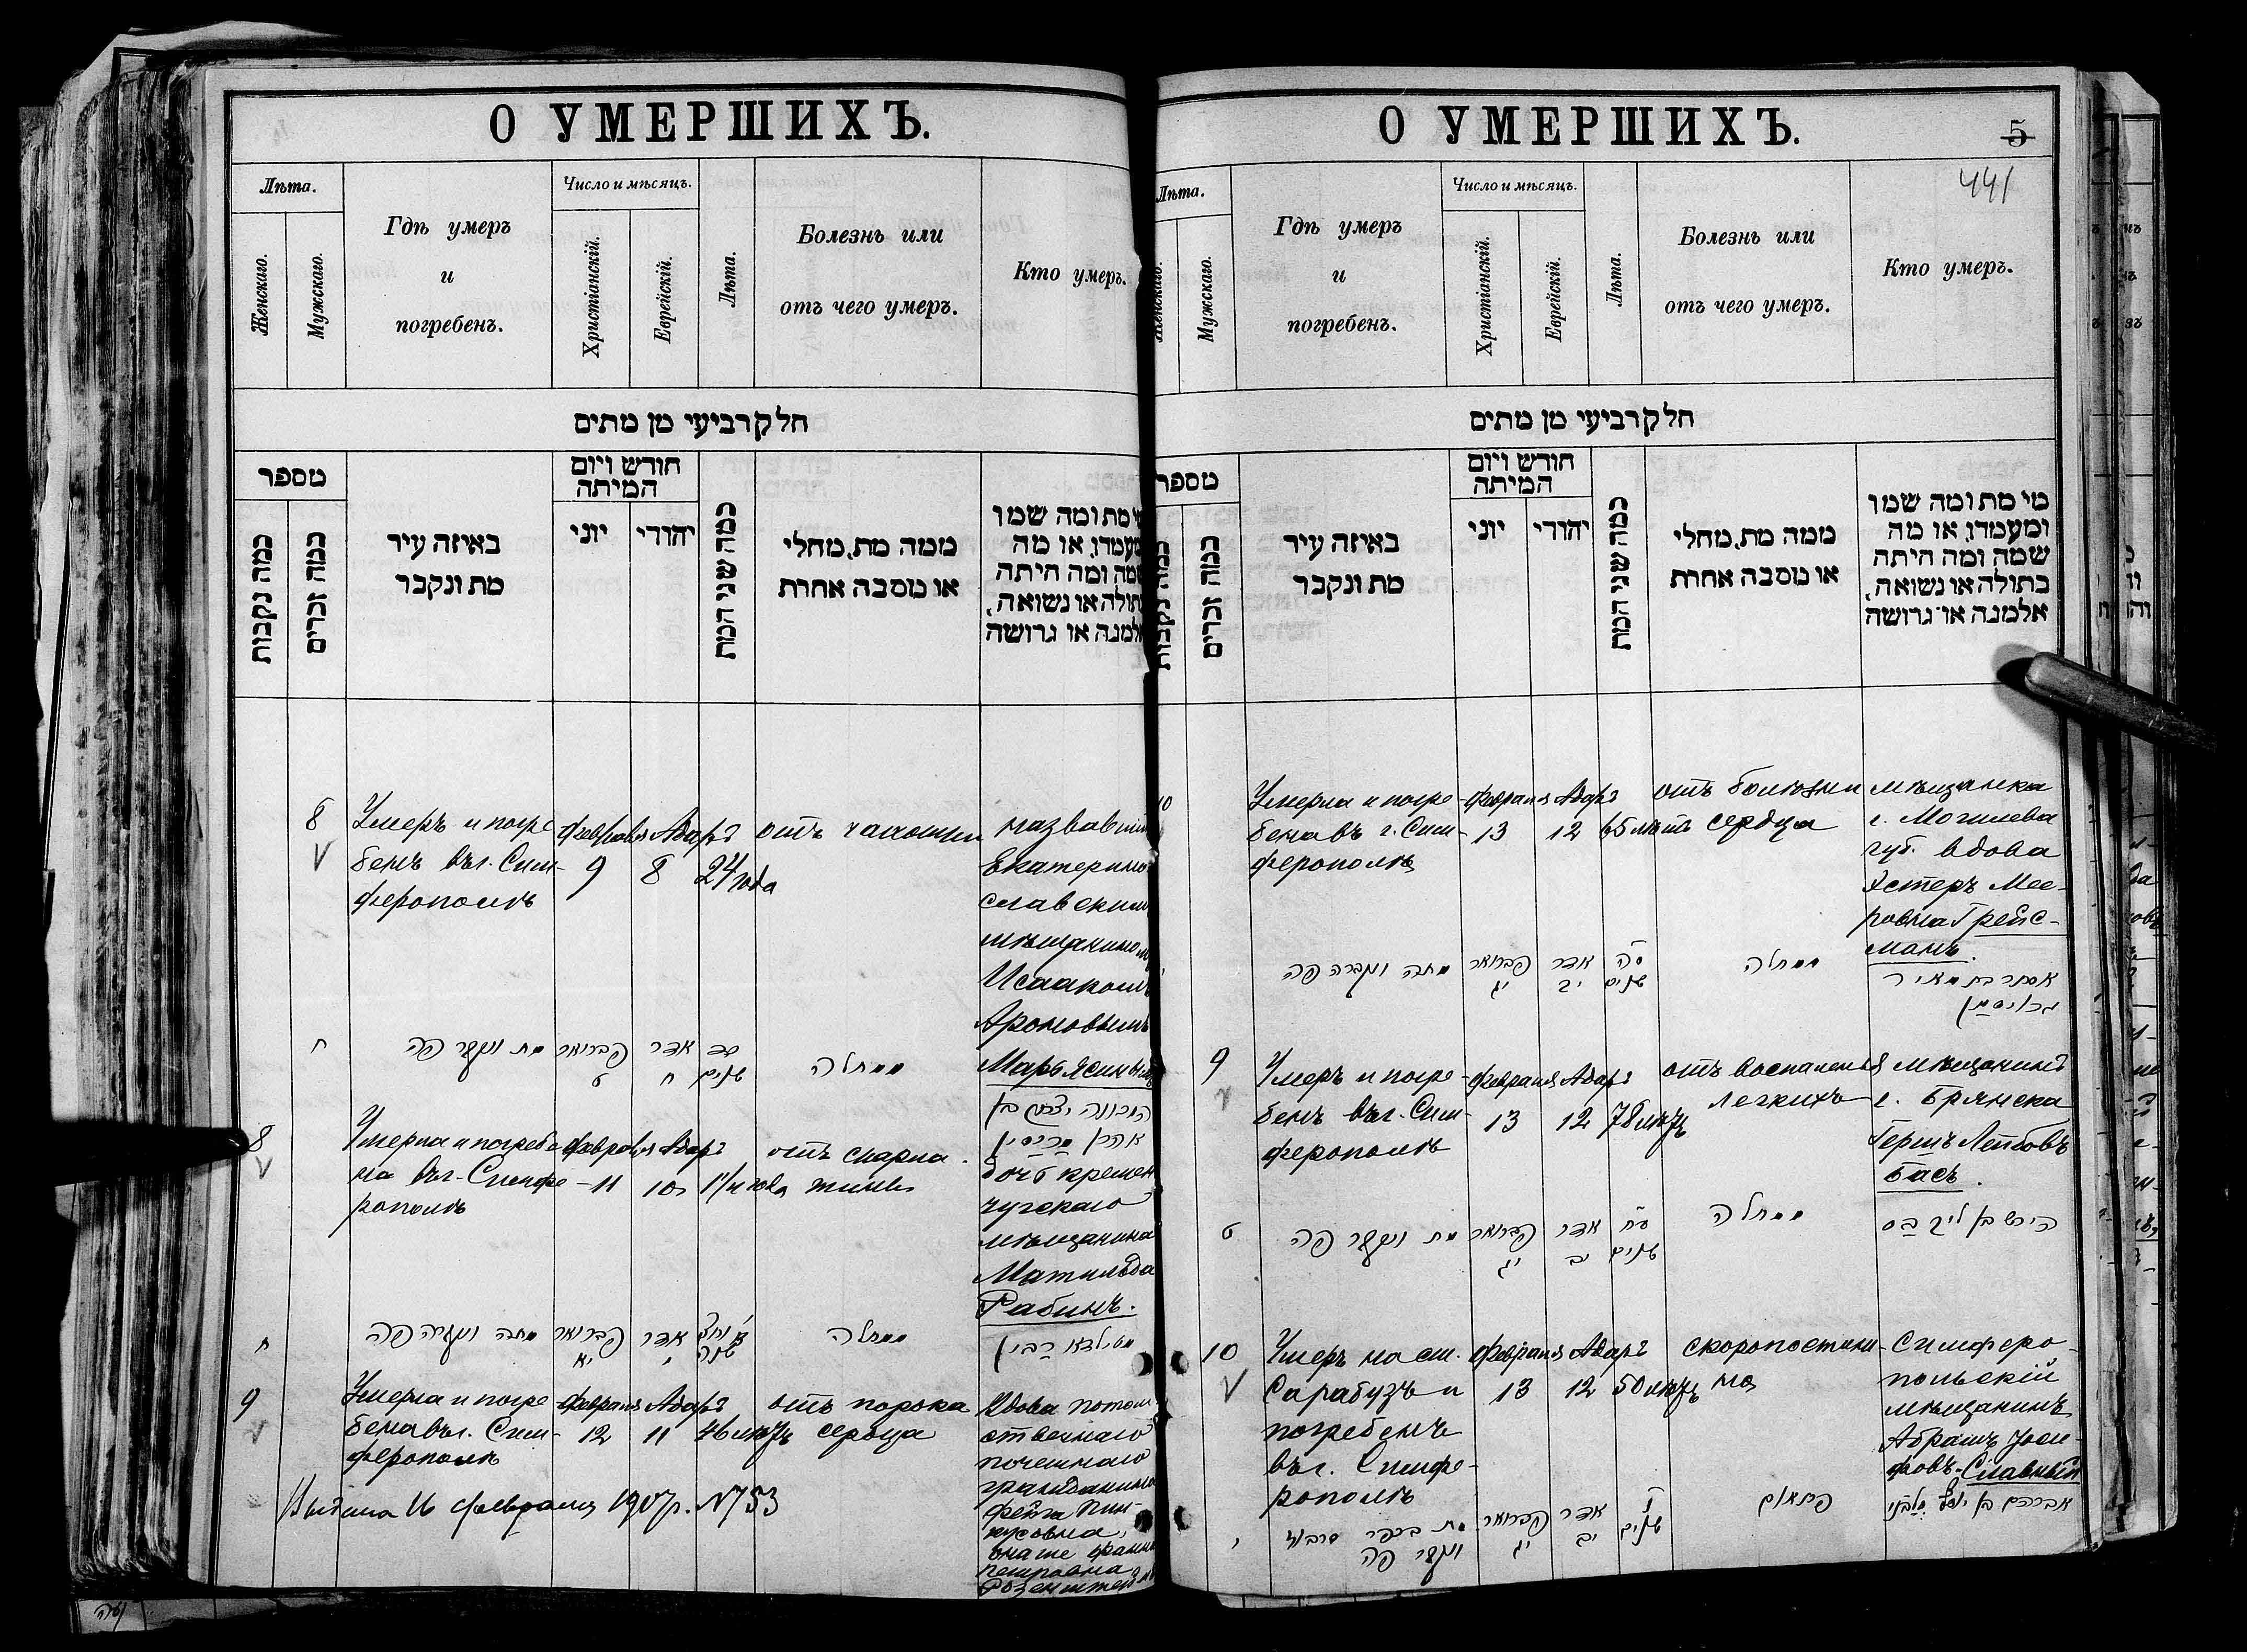 О УМЕРШИХЪ.
Лѣта.
Женскаго.
Мужскаго.
Гдѣ умеръ
и
погребенъ.
Число и мѣсяцъ.
Христіанскій.
Еврейскій.
Лѣта.
Болезнь или
отъ чего умеръ.
Кто умеръ.
חלק רביעי מן מתים
מספר
כמה נקבות
כמה זכרים
באיזה עיר
מת ונקבר
חודש ויום
המיתה
יוני
יהודי
כמה שני המת
ממה מת, מחלי
או מסבה אחרת
מי מת ומה שמו
ומעמדו, או מה
שמה ומה היתה
בתולה או נשואה,
אלמנה או גרושה
8
Умеръ и погре
бенъ въ г. Сим-
ферополѣ
Февраля
9
Адаръ
8
24 года
отъ чахотки
назвавши
Екатерино
славским
мѣщанином
Исааком
Ароновымъ
Марьясинымъ
ח
מת ונקבר פה
פברואר
ט
אדר
ח
כד
שנים
ממחלה
המכונה יצחק בן
אהרן מריסין
8
Умерла и погребе
на въ г. Симфе-
рополѣ
Февраля
11
Адаръ
10
1 1/2 года
отъ скарла-
тины
дочь кремен
чугскаго
мѣщанина
Матильда
Рабинъ.
ח
מתה ונקברה פה
פברואר
יא
אדר
י
שנה
ממחלה
מטילדא רבין
9
Умерла и погре
бена въ г. Сим-
ферополѣ
Февраля
12
Адаръ
11
46 лѣтъ
отъ порока
сердца
Вдова потом
ственнаго
почетнаго
гражданина
Фейга Пин-
кусовна,
она же Фанни
Петровна
Розенштейн
Выдана 16 февраля 1907 г. №53
О УМЕРШИХЪ.
5
441
Лѣта.
Женскаго.
Мужскаго.
Гдѣ умеръ
и
погребенъ.
Число и мѣсяцъ.
Христіанскій.
Еврейскій.
Лѣта.
Болезнь или
отъ чего умеръ.
Кто умеръ.
חלק רביעי מן מתים
מספר
כמה נקבות
כמה זכרים
באיזה עיר
מת ונקבר
חודש ויום
המיתה
יוני
יהודי
כמה שני המת
ממה מת, מחלי
או מסבה אחרת
מי מת ומה שמו
ומעמדו, או מה
שמה ומה היתה
בתולה או נשואה,
אלמנה או גרושה
10
Умерла и погре-
бена въ г. Сим-
ферополѣ
Февраля
13
Адаръ
12
65 лѣтъ
отъ болѣзни
сердца
мѣщанка
г. Могилева
губ. вдова
Эстеръ Мее-
ровна Грейс-
манъ.
מתה ונקברה פה
פברואר
יג
אדר
יב
סה
שנים
ממחלה
אסתר בת מאיר
גרייסמן
9
Умеръ и погре-
бенъ въ г. Сим-
ферополѣ
Февраля
13
Адаръ
12
78 лѣтъ
отъ воспаленія
легкихъ
мѣщанинъ
г. Брянска
Гершъ Лейбовъ
Басъ.
ט
מת ונקבר פה
פברואר
יג
אדר
יב
עח
שנים
ממחלה
הירש בן ליב בס
10
Умеръ на ст.
Сарабузъ и
погребенъ
въ г. Симфе-
рополѣ
Февраля
13
Адаръ
12
50 лѣтъ
скоропостиж-
но
Симферо-
польскій
мѣщанинъ
Абрамъ Іоси-
фовъ Славный
י
מת בכפר סרבוז
ונקבר פה
פברואר
יג
אדר
יב
נ
שנים
פתאום
אברהם בן יוסף סלבני